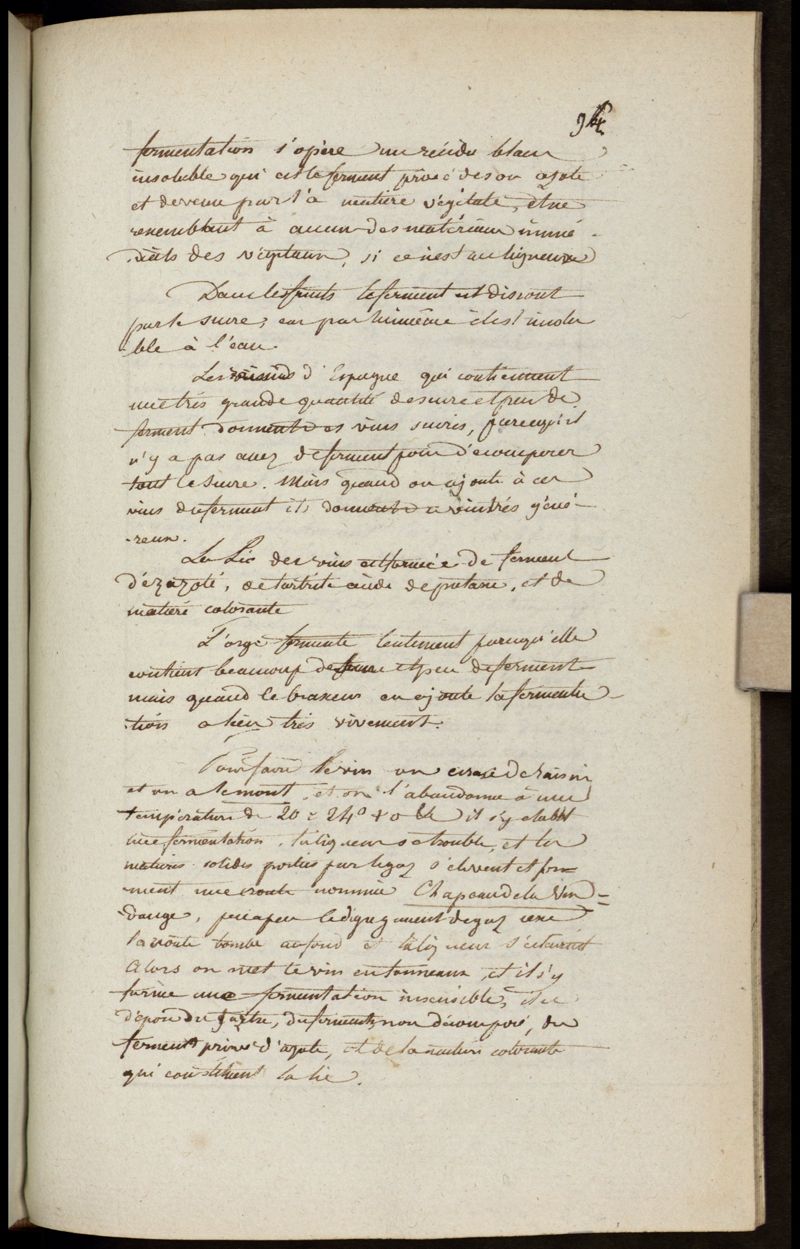 94
fermentation s'opère un résidu blanc
insoluble qui est le ferment privé de son azote
et devenu par là matière végétale, et ne
ressemblant à aucun des matériaux immé-
-diats des végétaux, si ce n'est au ligneux
Dans les fruits le ferment est dissout
par le sucre; car par lui même il est insolu
ble à l'eau.
Les raisins d'Espagne qui contiennent
une très grande quantité de sucre et peu de
ferment donnent des vins sucrés, parcequ'il
n'y a pas assez de ferment pour décomposer
tout le sucre. Mais quand on ajoute à ces
vins du ferment ils donnent un vin très géné-
-reux.
La Lie des vins est formée de ferment
dézazoté, de tartrite acide de potasse, et de
matière colorante
L'orge fermente lentement parcequ'elle
contient beaucoup de sucre et peu de ferment
mais quand le brasseur en ajoute la fermenta-
-tion a lieu très vivement.
Pour faire le vin on écrase le raisin
et on a le mout, et on l'abandonne à une
température de 20 à 24° + 0 il s'y établit
une fermentation, la liqueur se trouble, et les
matières solides portées par le gaz s'élèvent et for-
ment une croute nommée Chapeau de la Ven-
-dange, peu à peu le dégagement de gaz cesse
la croute tombe au fond et la liqueur s'éclaircit
Alors on met le vin en tonneaux et il s'y
forme une fermentation insensible, il se
dépose du tartre, du ferment non décomposé, du
ferment privé d'azote, et de la matière colorante
qui constituent la lie.